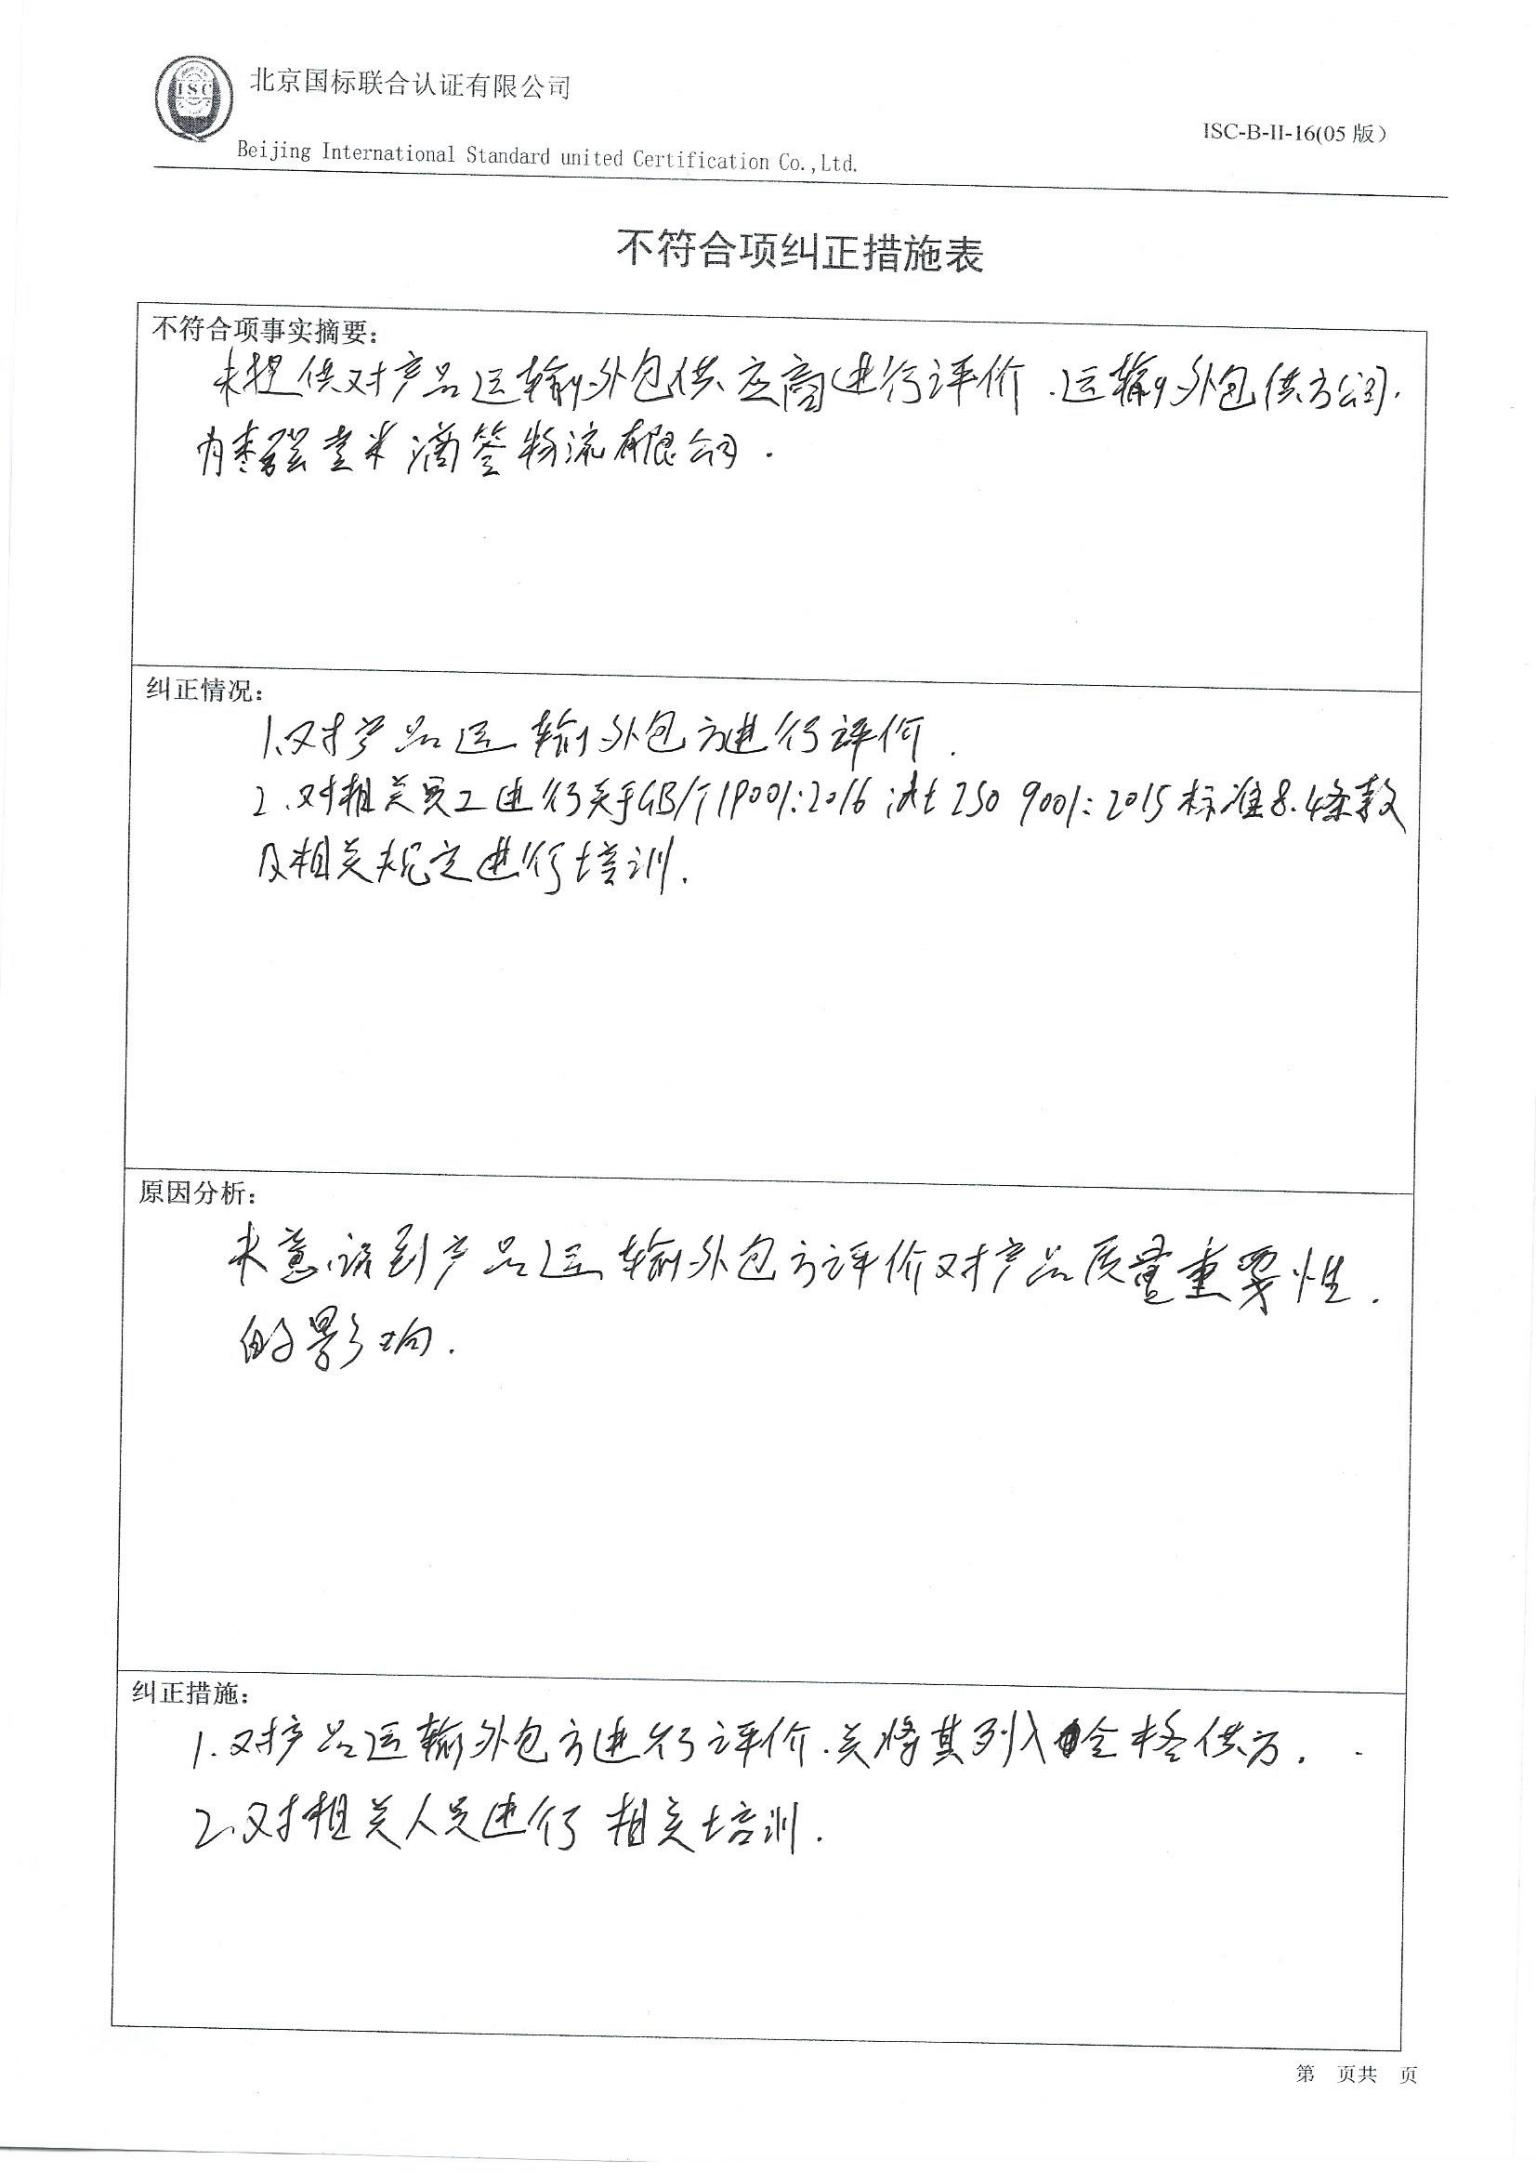 ISC
北京国标联合认证有限公司
Beijing International Standard united Certification Co.,Ltd.
ISC-B-II-16(05 版）
不符合项纠正措施表
不符合项事实摘要：
未提供对产品运输外包供应商进行评价.运输外包供方公司.
为枣强 物流有限公司.
纠正情况：
1.对产品运输外包方进行评价.
2.对相关员工进行关于GB/T19001:2016 idt ISO 9001:2015标准8.4条款
及相关规定进行培训.
原因分析：
未意识到产品运输外包方评价对产品质量重要性.
的影响.
纠正措施：
1.对产品运输外包方进行评价.并将其列入合格供方.
2.对相关人员进行相关培训.
第 页共 页